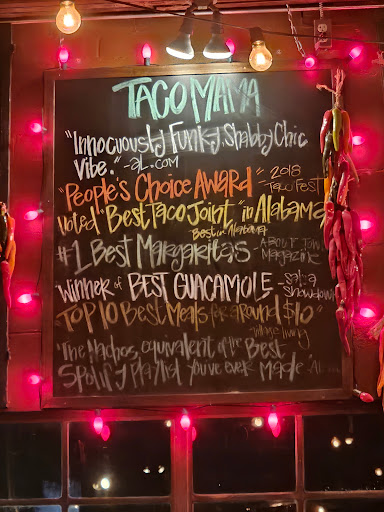 TACO MAMA
"Innocuously Funky, Shabby Chic
Vibe." -aL.COM
"People's Choice Award" - 2018
Taco Fest
Voted "Best Taco Joint" in Alabama
Best in Alabama
#1 Best Margaritas - About Town
Magazine
Winner of BEST GUACAMOLE -
Showdown
TOP 10 Best Meals for around $10"
living
"The Nachos equivalent of the Best
Spotify Playlist You've ever Made" AL.com